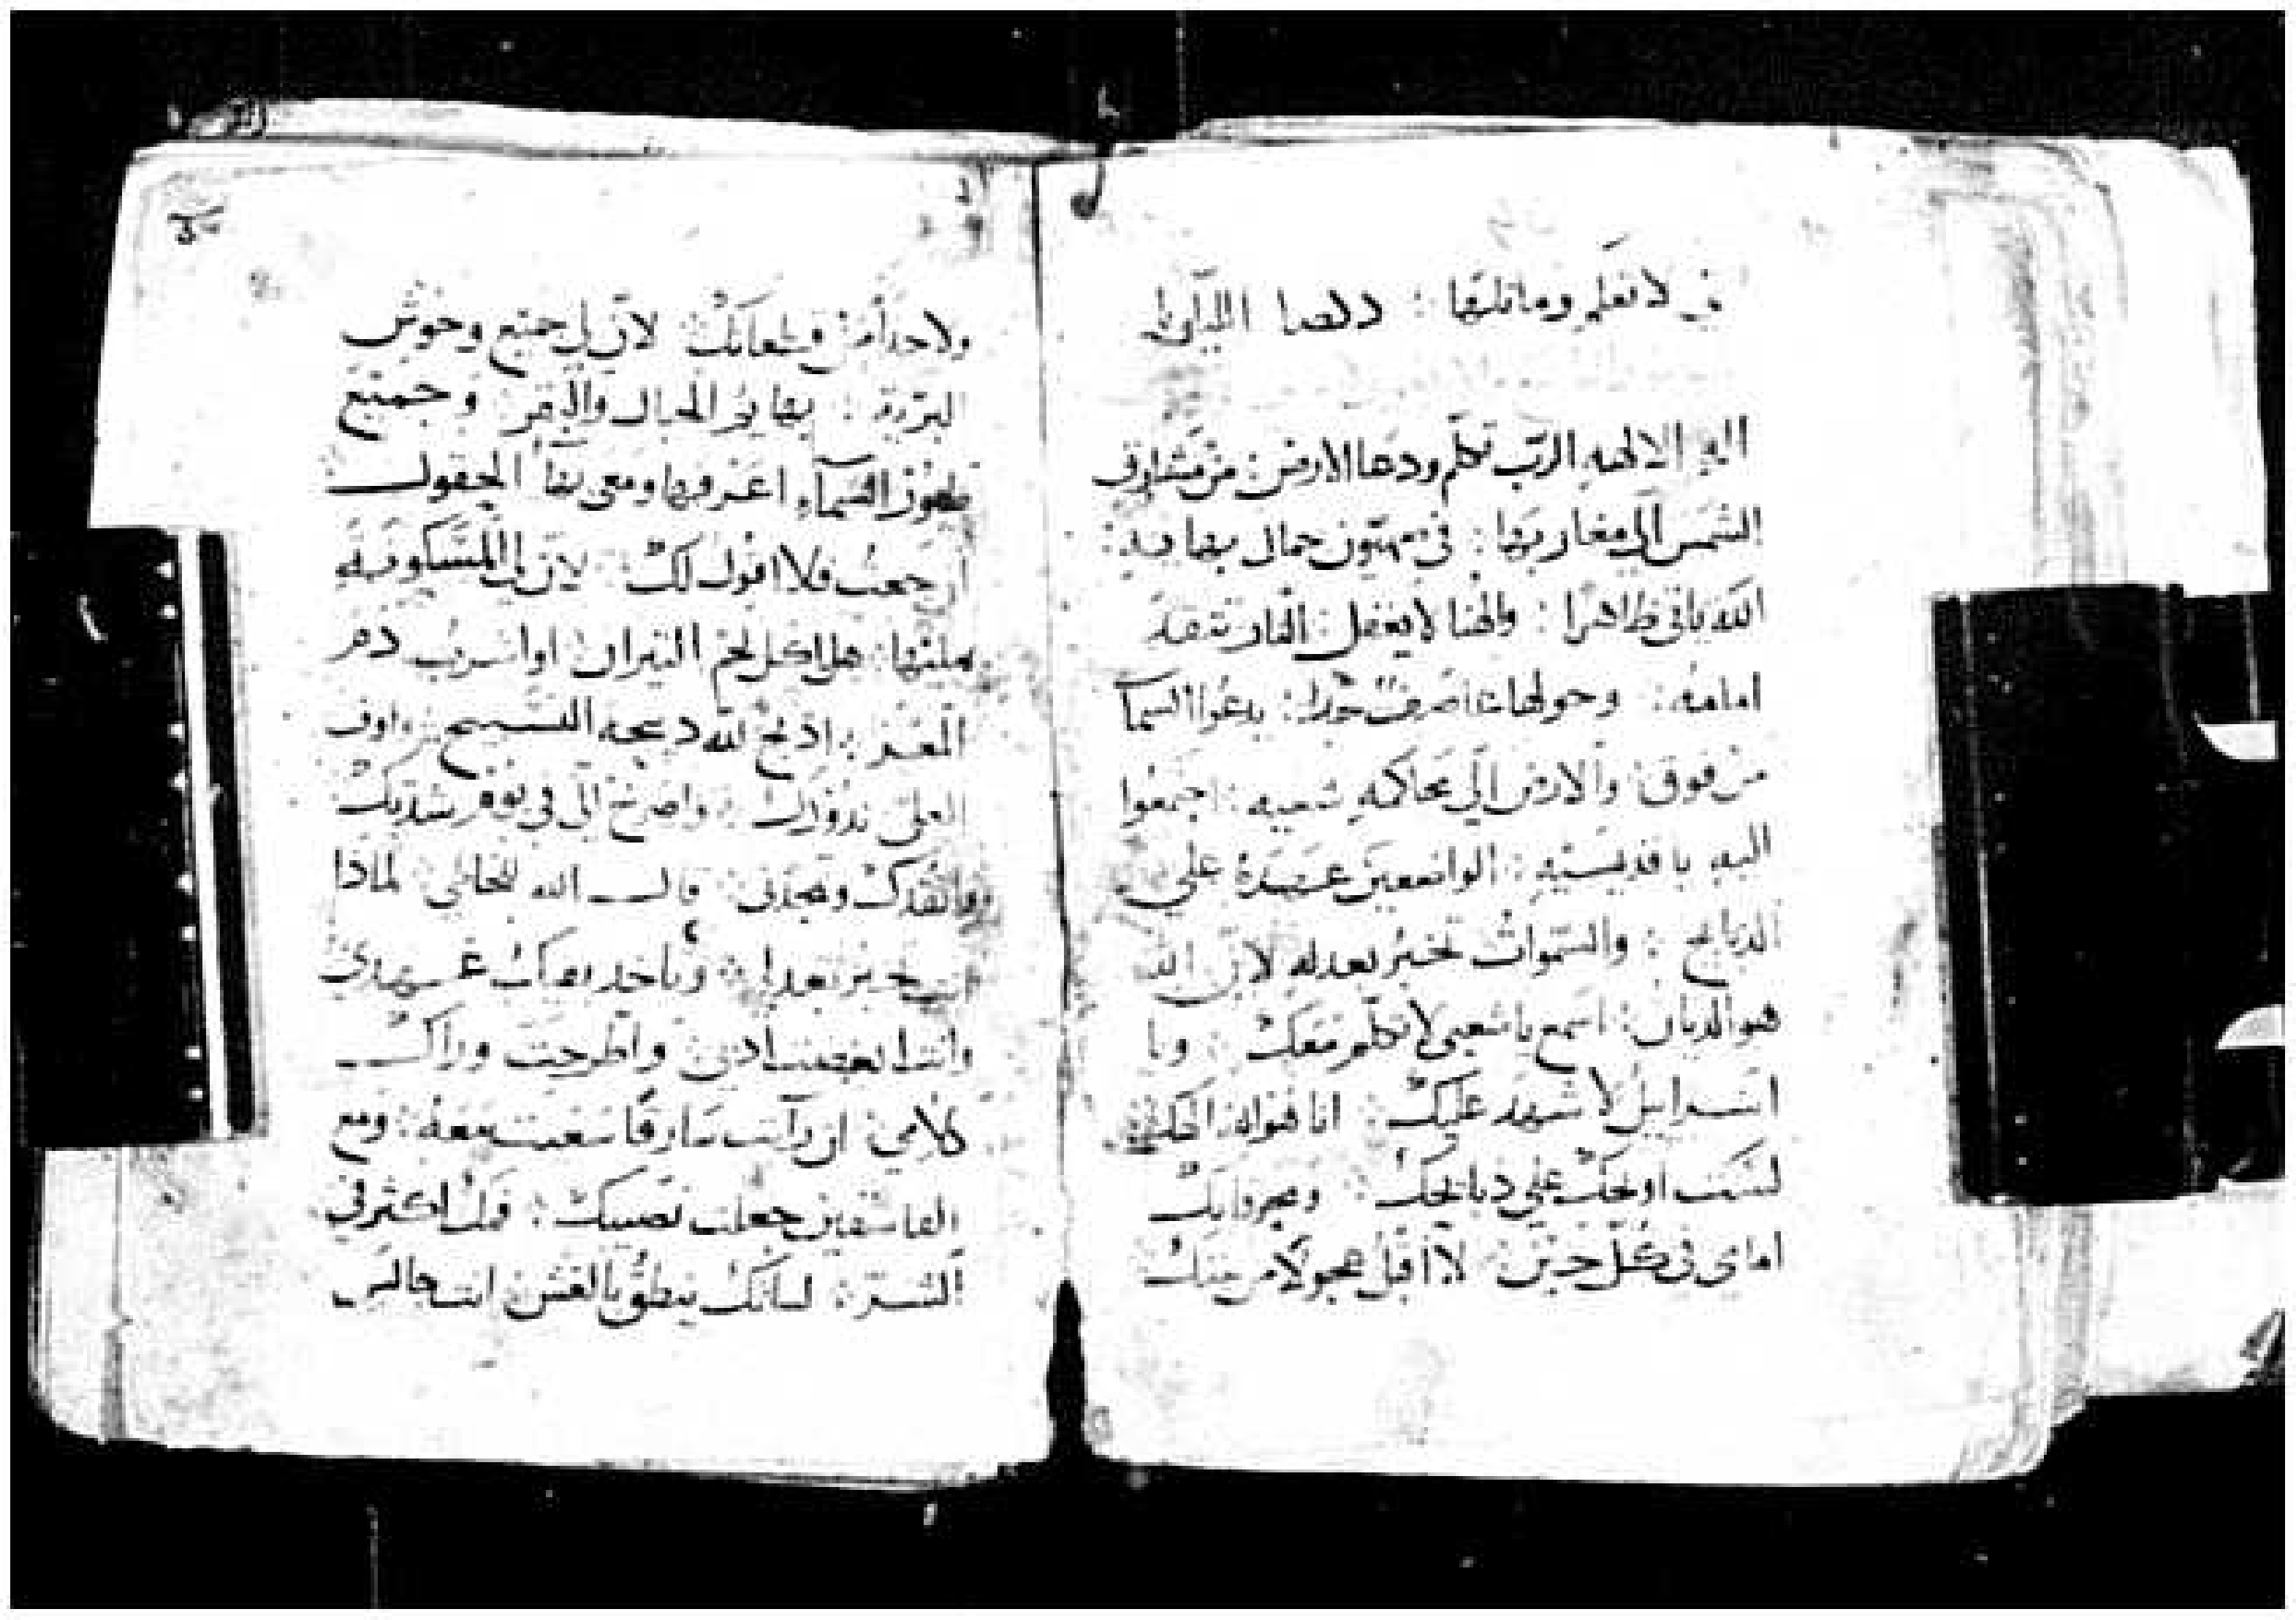 لا تغلم وماتلتها : دلصا
اله الالهه الرب تكلم ودعا الارض : من مشارق
الشمس الى مغاربها : فى صهيون جمال بهايه :
الله ياتى ظاهرا : والهنا لا يغفل : النار تتقد
امامه : وحوله جدا : يدعوا السما
من فوق : والارض الى محاكمه شعبه : اجتمعوا
اليه يا قديسيه : الواضعين عهده على
الدبايح : والسموات تخبر بعدله لان الله
هو الديان : اسمع يا شعبى لاتكلم معك : ويا
اسراييل لاشهد عليك : انا هو الله الهك :
لست اوبخك على دبايحك : ومحرقاتك
امامى فى كل حين : لا اقبل عجولا من بيتك
ولا جدا من قطعانك : لان لى جميع وحوش
البرية : بهايم الجبال والبقر : وجميع
طيور السماء اعرفها ومعى بها الحقول
ان جعت فلا اقول لك : لان لى المسكونه
بملئها : هل اكل لحم التيران : او اشرب دم
المعز : اذبح لله دبيحه التسبيح : اوف
العلى ندورك : واصرخ الى فى يوم شدتك
فانقدك وتمجدنى : قال الله للخاطى : لماذا
انت تخبر بعدلى : وتاخد بفمك عهدى
وانت ابغضت ادبى : واطرحت وراك
كلامى : ان رايت سارقا سعيت معه : ومع
الفاسقين جعلت نصيبك : فمك اكثر فى
الشر : لسانك ينطق بالغش : انت جالس